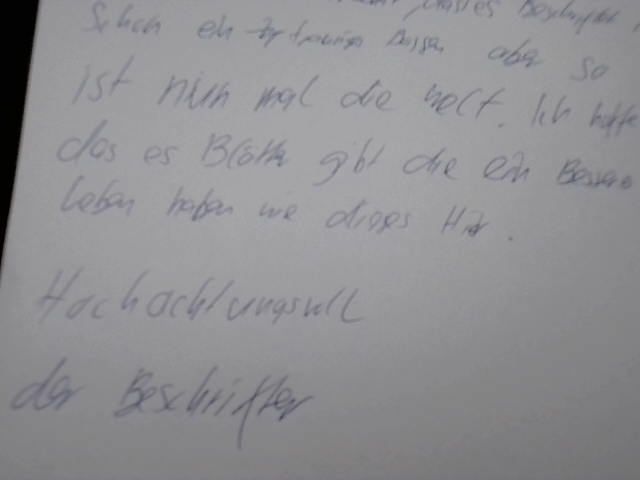 Beschrifter
Schon ein trauriges Dassen aber so
ist nun mal die welt. Ich hoffe
das es Blätter gibt die ein Besseres
leben haben wie dieses Hir.
Hochachtungsvoll
der Beschrifter